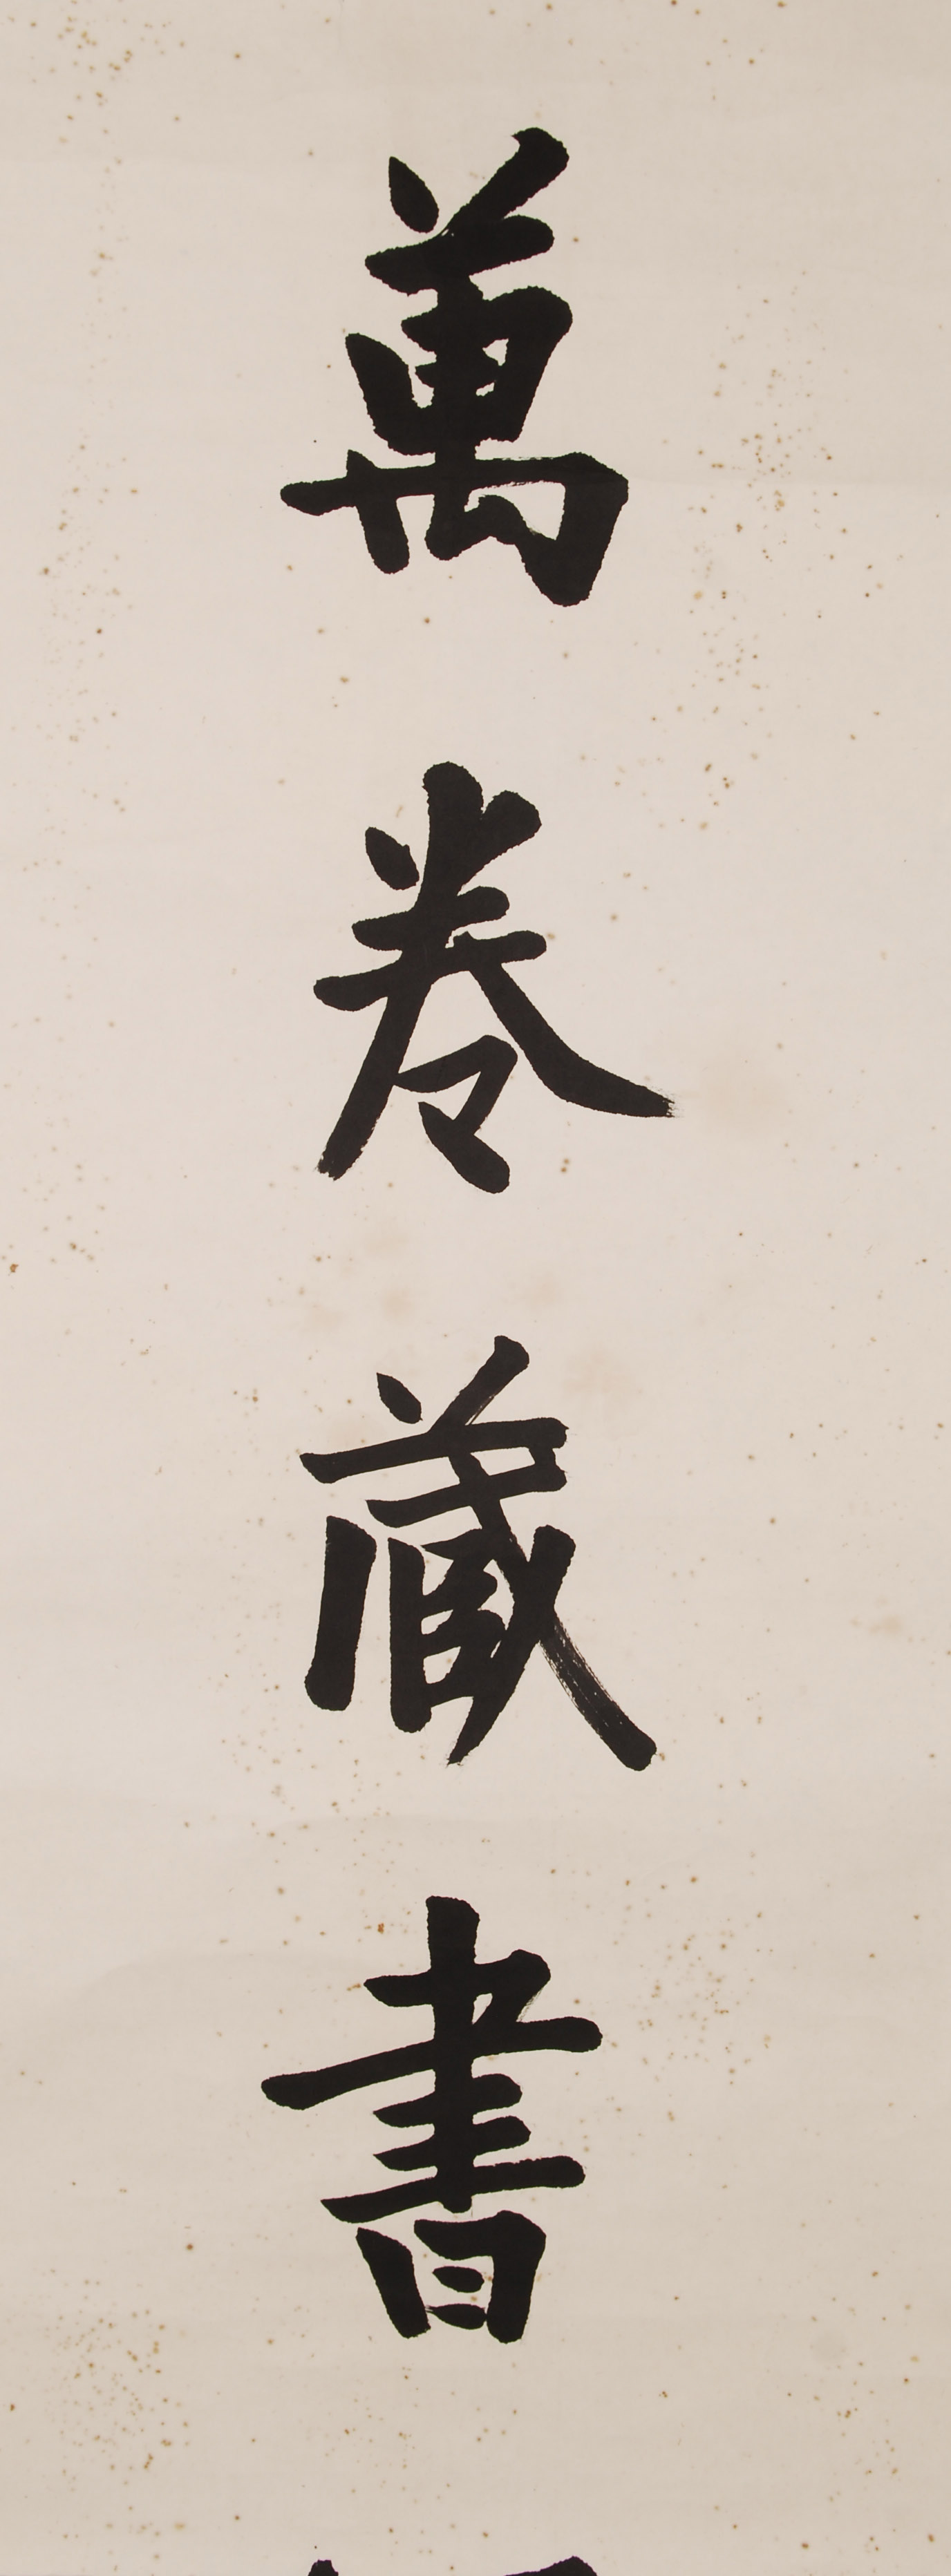 萬卷藏書